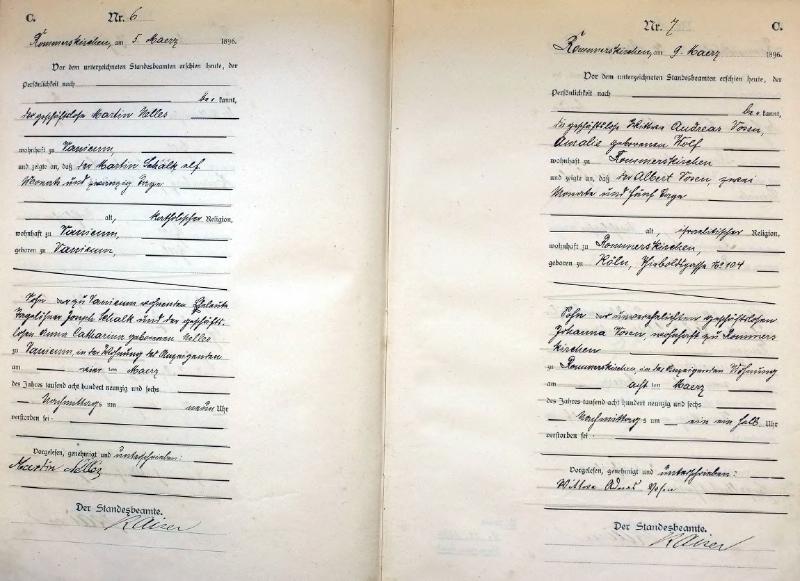 C.
Nr. 6
Rommerskirchen, am 5 Maerz 1896.
Vor dem unterzeichneten Standesbeamten erschien heute, der
Persönlichkeit nach
be kannt,
der geschäftslose Martin Nelles
wohnhaft zu Vanicum,
und zeigte an, daß der Martin Schalk elf
Monate und zwanzig Tage
alt, katholischer Religion,
wohnhaft zu Vanicum,
geboren zu Vanicum,
Sohn der zu Vanicum wohnenden Eheleute
Tagelöhner Joseph Schalk und der geschäfts-
losen Anna Catharina geborenen Nelles
zu Vanicum, in der Wohnung des Anzeigenden
am vier ten Maerz
des Jahres tausend acht hundert neunzig und sechs
Nachmittags um neun Uhr
verstorben sei.
Vorgelesen, genehmigt und unterschrieben:
Martin Nelles
Der Standesbeamte.
Kaiser
Nr. 7
C.
Rommerskirchen, am 9 Maerz 1896.
Vor dem unterzeichneten Standesbeamten erschien heute, der
Persönlichkeit nach
be kannt,
die geschäftslose Wittwe Andreas Vosen,
Amalie geborenen Wolf
wohnhaft zu Rommerskirchen
und zeigte an, daß der Albert Vosen, zwei
Monate und fünf Tage
alt, israelitischer Religion,
wohnhaft zu Rommerskirchen,
geboren zu Köln, Thieboldsgasse No 104
Sohn der unverehelichten geschäftslosen
Johanna Vosen, wohnhaft zu Rommers
kirchen
zu Rommerskirchen, in der Anzeigenden Wohnung
am acht ten Maerz
des Jahres tausend acht hundert neunzig und sechs
Nachmittags um ein ein halb Uhr
verstorben sei.
Vorgelesen, genehmigt und unterschrieben:
Wittwe
Der Standesbeamte.
Kaiser